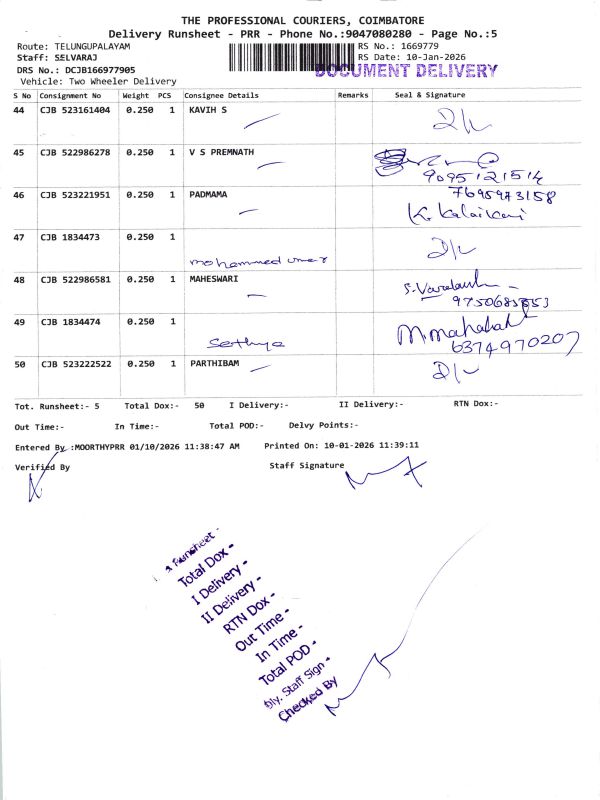 THE PROFESSIONAL COURIERS, COIMBATORE
Delivery Runsheet - PRR - Phone No.:9047080280 - Page No.:5
Route: TELUNGUPALAYAM
RS No.: 1669779
Staff: SELVARAJ
RS Date: 10-Jan-2026
DRS No.: DCJB166977905
DOCUMENT DELIVERY
Vehicle: Two Wheeler Delivery
S No Consignment No Weight PCS Consignee Details Remarks Seal & Signature
44 CJB 523161404 0.250 1 KAVIH S D/L
45 CJB 522986278 0.250 1 V S PREMNATH
9095121514
46 CJB 523221951 0.250 1 PADMAMA 7695973158
K. Kalaivani
47 CJB 1834473 0.250 1 D/L
mohammed umar
48 CJB 522986581 0.250 1 MAHESWARI
49 CJB 1834474 0.250 1
Sathya
6374970207
50 CJB 523222522 0.250 1 PARTHIBAM D/L
Tot. Runsheet:- 5 Total Dox:- 50 I Delivery:- II Delivery:- RTN Dox:-
Out Time:- In Time:- Total POD:- Delvy Points:-
Entered By :MOORTHYPRR 01/10/2026 11:38:47 AM Printed On: 10-01-2026 11:39:11
Verified By Staff Signature
Runsheet -
Total Dox -
I Delivery -
II Delivery -
RTN Dox -
Out Time -
In Time -
Total POD -
Dly. Staff Sign -
Checked By